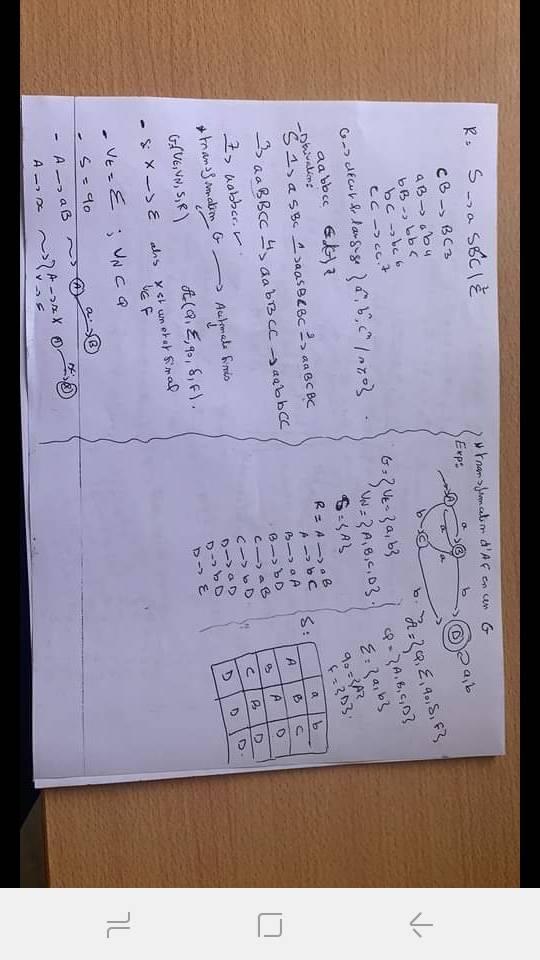 R = S → a SBC | ε
CB → BC 3
aB → ab 4
bB → bb 5
bC → bc 6
cC → cc. 7
G → décrit le langage {aⁿ, bⁿ, cⁿ / n ≥ 0}.
aabbcc ∈ L(G) ?
- Dérivation:
S 1→ aSBC 1→ aaSBCBC 2→ aaBCBC
3→ aaBBCC 4→ aabBCC → aabbCC
7→ aabbcc. ✓
* transformation G → Automate finis
G(VE, VN, S, R) A(Q, Σ, q0, δ, F).
- si X → ε alors X est un état final
- VE = Σ ; VN ⊂ Q
- S = q0
- A → aB ⤳ A a B
A → x ⤳ { A → xX A x X
X → ε
* transformation d'AF en un G
Exp:
A a B b D a,b
a
b C b
A = {Q, Σ, q0, δ, F}
Q = {A, B, C, D}
Σ = {a, b}
q0 = {A}
F = {D}.
G = } VE = {a, b}
VN = {A, B, C, D}.
S = {A}
R = A → aB
A → bC
B → aA
B → bD
C → aB
C → bD
D → aD
D → bD
D → ε
δ:
a b
A B C
B A D
C B D
D D D.